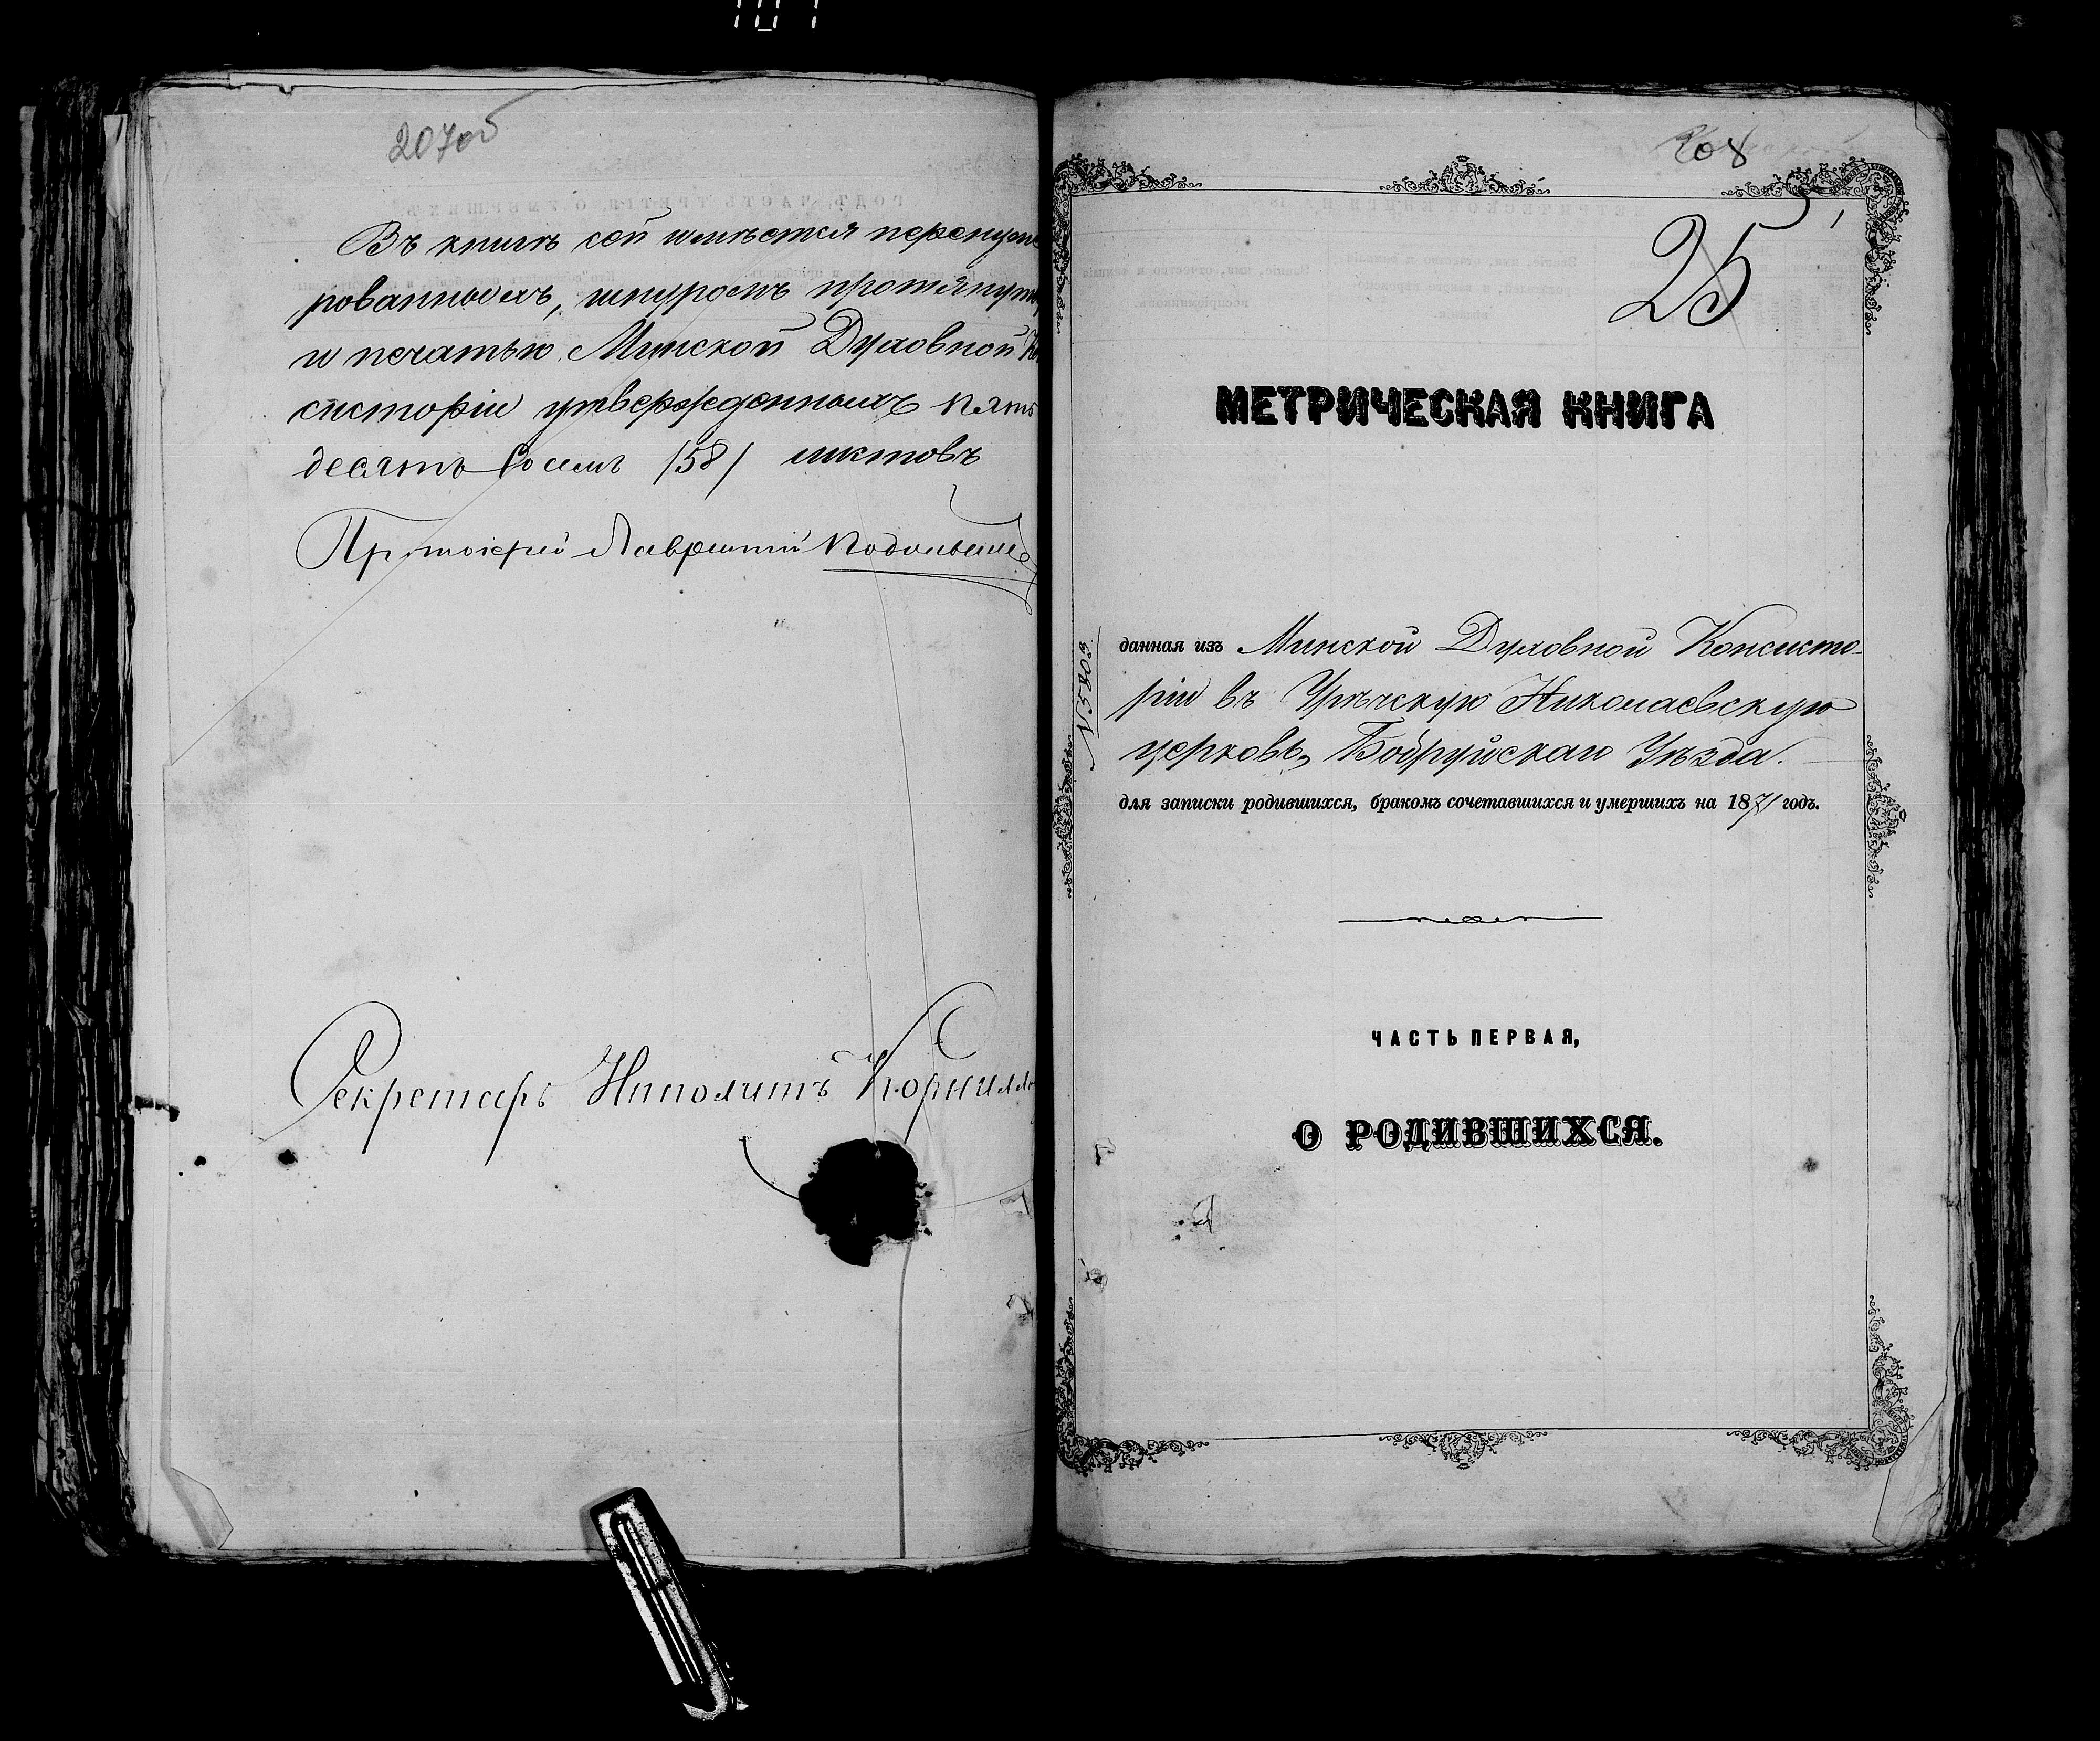 207об
Въ книгѣ сей имѣется перенуме
рованныхъ, шнуромъ протянуты
и печатью Минской Духовной Ко
систоріи утвержденныхъ пять
десятъ восемь /58/ листовъ
Протоіерей Лаврентій
Секретарь Ипполитъ Корнилло
208
25
МЕТРИЧЕСКАЯ КНИГА
№ 5803
данная изъ Минской Духовной Консисто-
ріи въ Урѣчскую Николаевскую
церковь, Бобруйскаго Уѣзда.
для записки родившихся, бракомъ сочетавшихся и умершихъ на 1871 годъ.
ЧАСТЬ ПЕРВАЯ,
О РОДИВШИХСЯ.